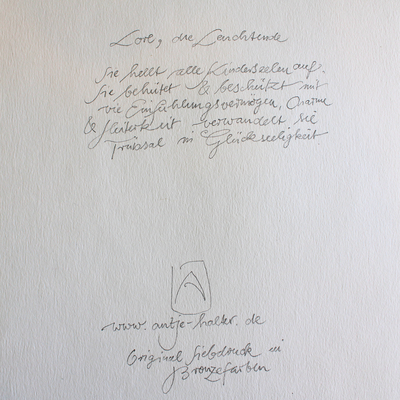 Lore, die Leuchtende
Sie hellt alle Kinderseelen auf.
Sie behütet & beschützt mit
viel Einfühlungsvermögen, Charme
& Heiterkeit verwandelt sie
Trübsal in Glückseeligkeit
www.antje-halter.de
Original Siebdruck in
Bronzefarben